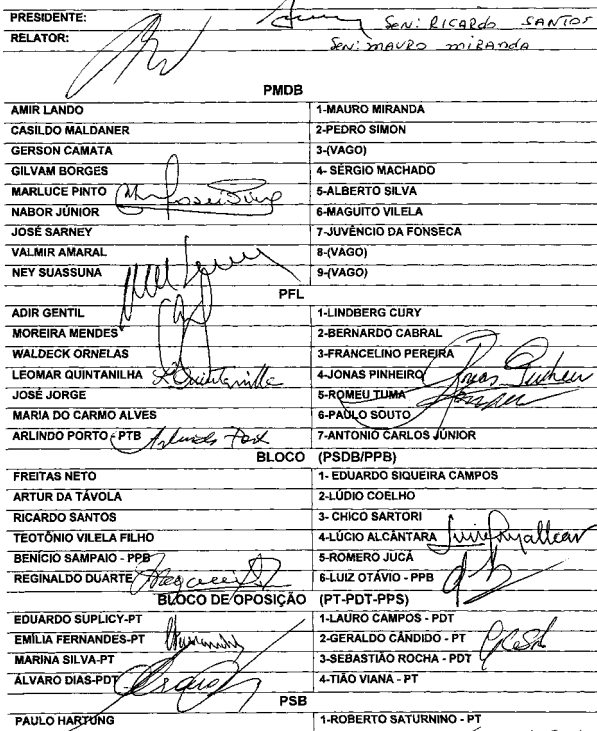 PRESIDENTE: Sen: RICARDO SANTOS
RELATOR: Sen: MAURO MIRANDA
PMDB
AMIR LANDO 1-MAURO MIRANDA
CASILDO MALDANER 2-PEDRO SIMON
GERSON CAMATA 3-(VAGO)
GILVAM BORGES 4- SÉRGIO MACHADO
MARLUCE PINTO 5-ALBERTO SILVA
NABOR JÚNIOR 6-MAGUITO VILELA
JOSÉ SARNEY 7-JUVÊNCIO DA FONSECA
VALMIR AMARAL 8-(VAGO)
NEY SUASSUNA 9-(VAGO)
PFL
ADIR GENTIL 1-LINDBERG CURY
MOREIRA MENDES 2-BERNARDO CABRAL
WALDECK ORNELAS 3-FRANCELINO PEREIRA
LEOMAR QUINTANILHA 4-JONAS PINHEIRO
JOSÉ JORGE 5-ROMEU TUMA
MARIA DO CARMO ALVES 6-PAULO SOUTO
ARLINDO PORTO - PTB 7-ANTONIO CARLOS JÚNIOR
BLOCO (PSDB/PPB)
FREITAS NETO 1- EDUARDO SIQUEIRA CAMPOS
ARTUR DA TÁVOLA 2-LÚDIO COELHO
RICARDO SANTOS 3- CHICO SARTORI
TEOTÔNIO VILELA FILHO 4-LÚCIO ALCÂNTARA
BENÍCIO SAMPAIO - PPB 5-ROMERO JUCÁ
REGINALDO DUARTE 6-LUIZ OTÁVIO - PPB
BLOCO DE OPOSIÇÃO (PT-PDT-PPS)
EDUARDO SUPLICY-PT 1-LAURO CAMPOS - PDT
EMÍLIA FERNANDES-PT 2-GERALDO CÂNDIDO - PT
MARINA SILVA-PT 3-SEBASTIÃO ROCHA - PDT
ÁLVARO DIAS-PDT 4-TIÃO VIANA - PT
PSB
PAULO HARTUNG 1-ROBERTO SATURNINO - PT